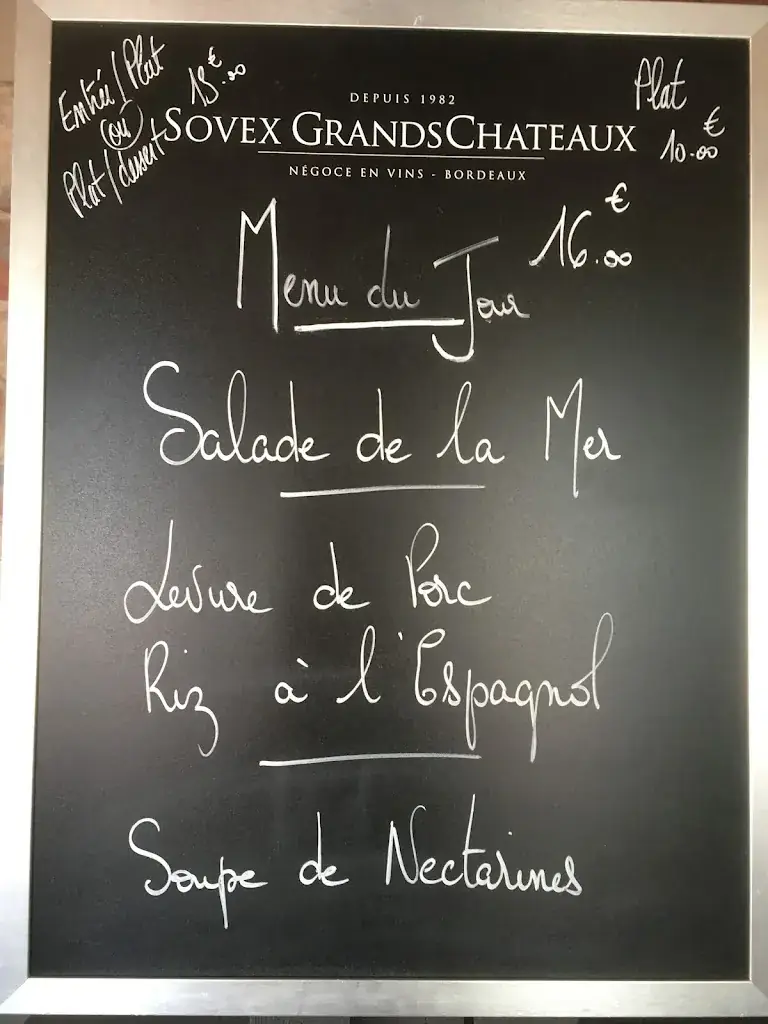 Entrée/Plat
(ou)
Plat/dessert
13.00 €
DEPUIS 1982
SOVEX GRANDSCHATEAUX
NÉGOCE EN VINS - BORDEAUX
Plat
10.00 €
Menu du Jour
16.00 €
Salade de la Mer
Levure de Porc
Riz à l'Espagnol
Soupe de Nectarines